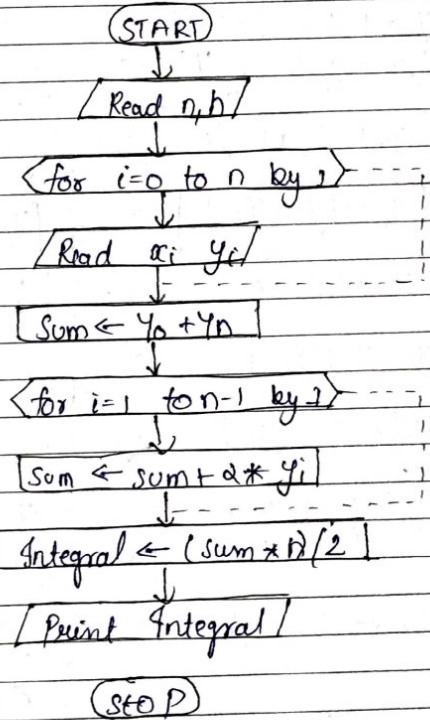 START
Read n,h
for i=0 to n by 1
Read xi yi
Sum ← y0 + yn
for i=1 to n-1 by 1
Sum ← sum + 2* yi
Integral ← (sum * h)/2
Print Integral
StOP